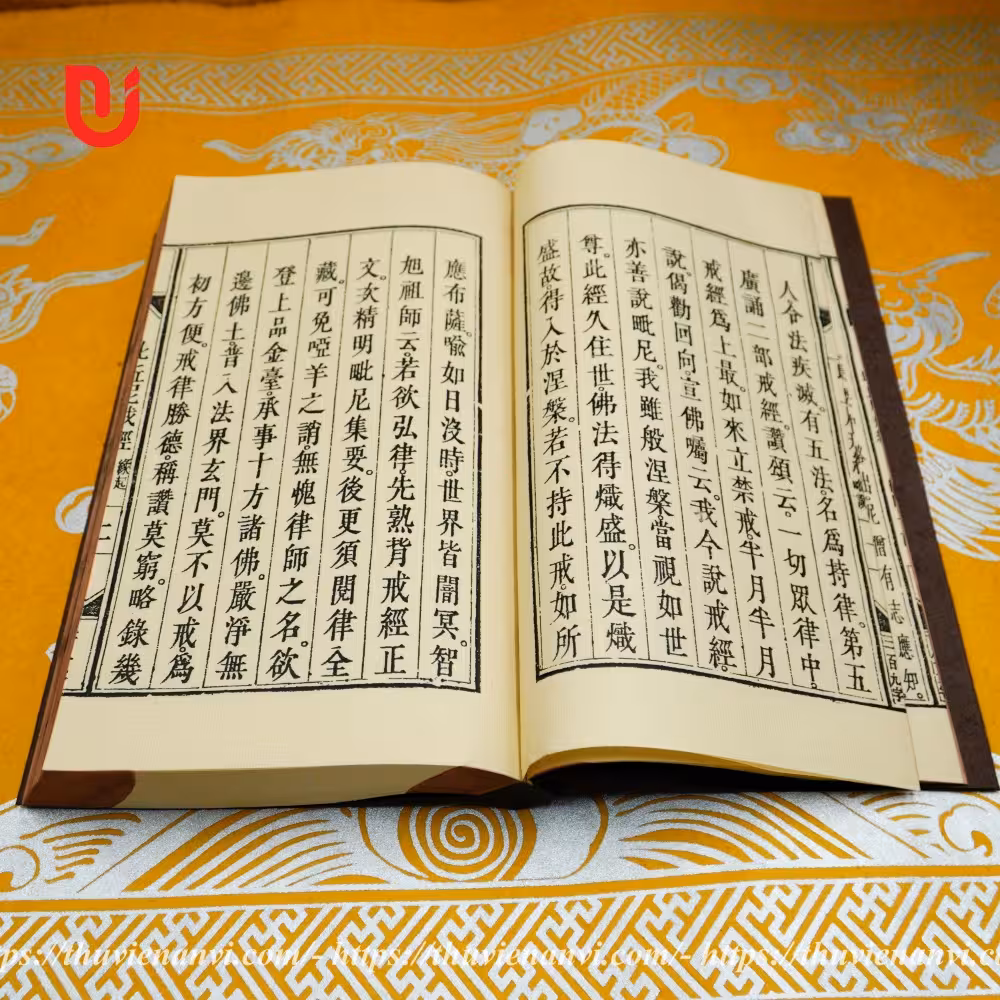 僧有志應知。
三百九字
人令法疾滅。有五法。名爲持律。第五
廣誦二部戒經。讚頌云。一切眾律中。
戒經爲上最。如來立禁戒。半月半月
說。偈勸回向。宣佛囑云。我今說戒經。
亦善說毗尼。我雖般涅槃。當視如世
尊。此經久住世。佛法得熾盛。以是熾
盛故。得入於涅槃。若不持此戒。如所
應布薩。喻如日沒時。世界皆闇冥。智
旭祖師云。若欲弘律。先熟背戒經正
文。次精明毗尼集要。後更須閱律全
藏。可免啞羊之誚。無愧律師之名。欲
登上品金臺。承事十方諸佛。嚴淨無
邊佛土。普入法界玄門。莫不以戒。爲
初方便。戒律勝德稱讚莫窮。略錄幾
戒經 緣起
https://thuvienanvi.com/ - https://thuvienanvi.com/ - https://thuvienanvi.com